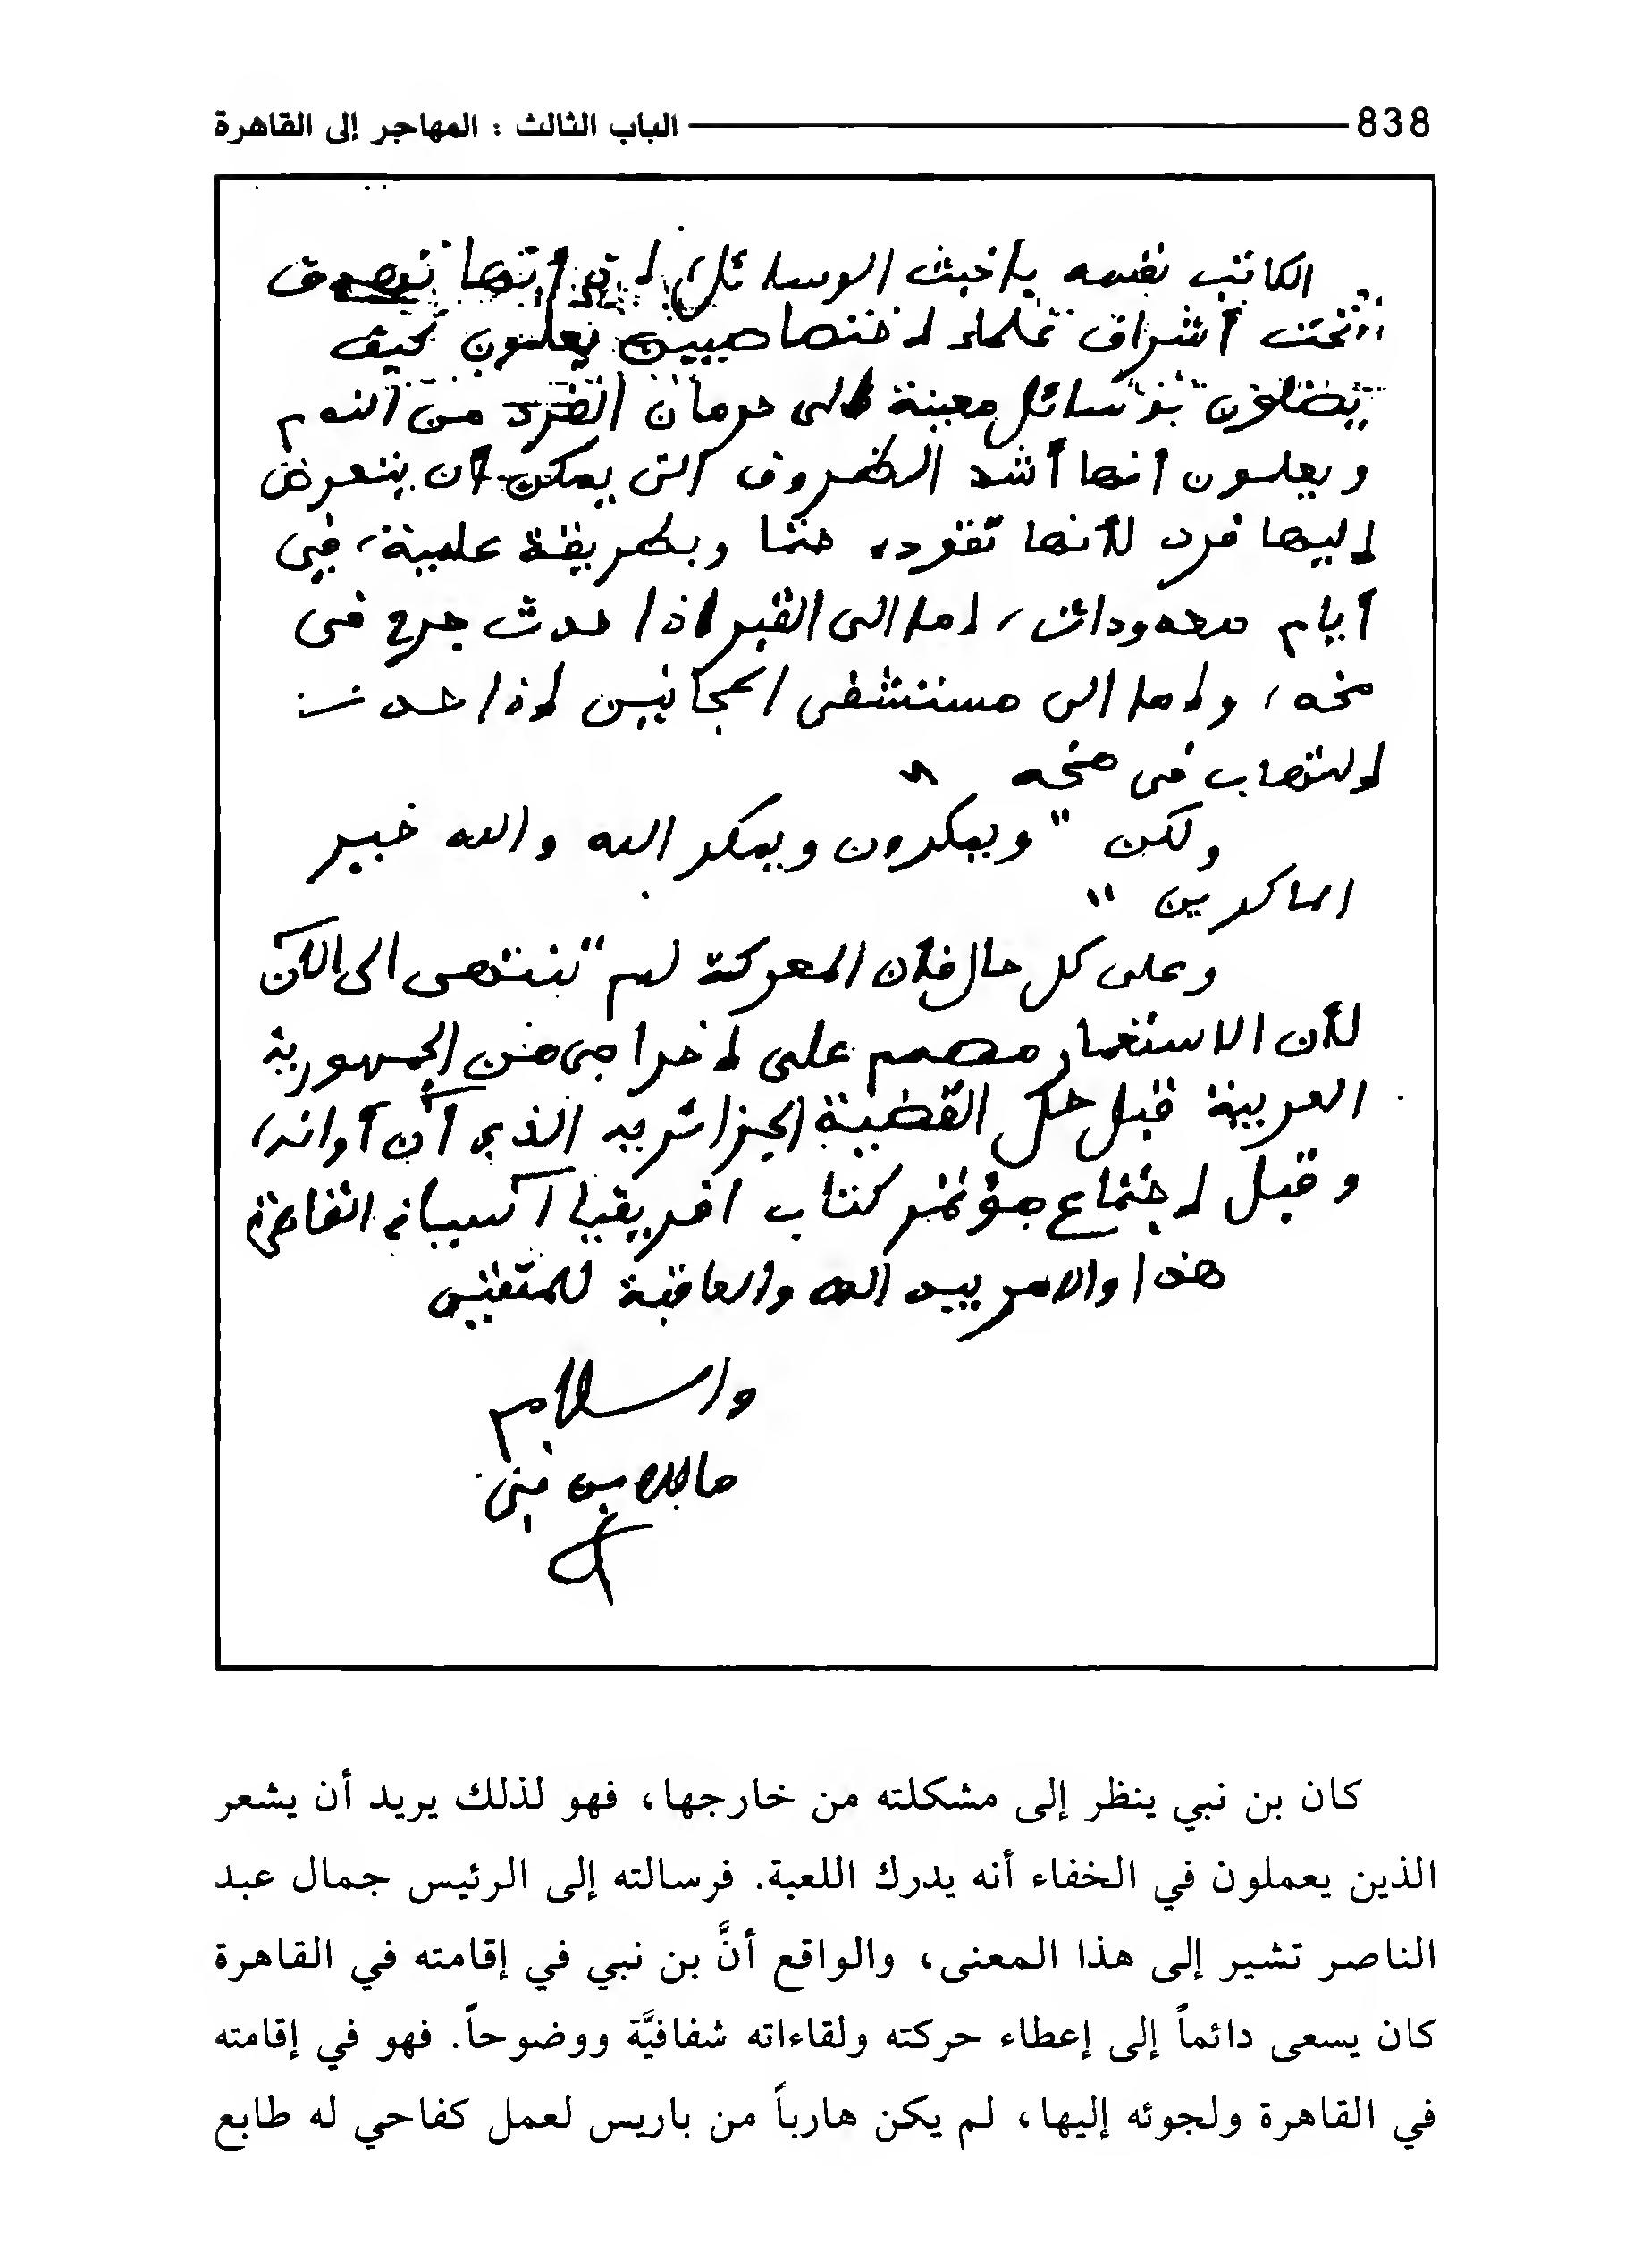 838 الباب الثالث : المهاجر إلى القاهرة
الكاتب نفسه بأخبث الوسائل
تحت أشراف علماء إختصاصيين يعلمون كيف
بوسائل معينة إلى حرمان الفرد من النوم
ويعلمون أنها أشد الظروف التى يمكن أن يتعرض
إليها فرد لأنها تقوده حتما وبطريقة علمية، فى
أيام معدودات، إما الى القبر إذا حدث جرح فى
مخه، وإما الى مستشفى المجانين إذا حدث
إلتهاب فى مخه "
ولكن " ويمكرون ويمكر الله والله خير
الماكرين "
وعلى كل حال فأن المعركة لم تنتهى الى الآن
لأن الاستعمار مصمم على إخراجى من الجمهورية
العربية قبل حل القضية الجزائريه الذي آن آوانه،
وقبل إجتماع مؤتمر كتاب افريقيا آسيا فى القاهرة
هذا والامر بيد الله والعاقبة للمتقين
والسلام
مالك بن نبى
كان بن نبي ينظر إلى مشكلته من خارجها، فهو لذلك يريد أن يشعر
الذين يعملون في الخفاء أنه يدرك اللعبة. فرسالته إلى الرئيس جمال عبد
الناصر تشير إلى هذا المعنى، والواقع أنَّ بن نبي في إقامته في القاهرة
كان يسعى دائماً إلى إعطاء حركته ولقاءاته شفافيَّة ووضوحاً. فهو في إقامته
في القاهرة ولجوئه إليها، لم يكن هارباً من باريس لعمل كفاحي له طابع